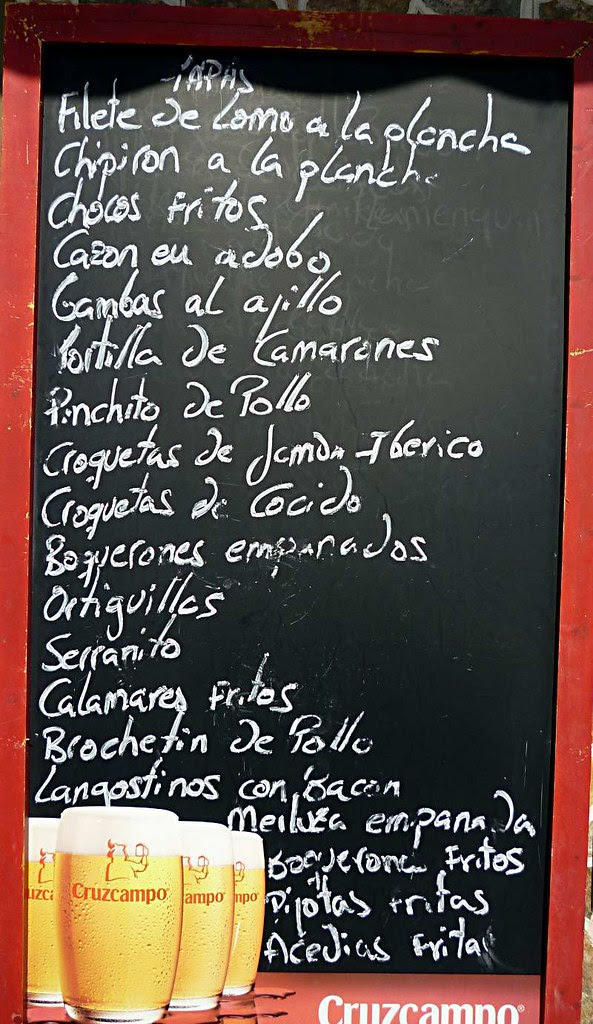 TAPAS
Filete de Lomo a la plancha
Chipiron a la plancha
Chocos fritos
Cazon en adobo
Gambas al ajillo
Tortilla de Camarones
Pinchito de Pollo
Croquetas de Jamon Iberico
Croquetas de Cocido
Boquerones empanados
Ortiguillas
Serranito
Calamares Fritos
Brochetin de Pollo
Langostinos con Bacon
Merluza empanada
Boquerones Fritos
Pijotas Fritas
Acedias Fritas
Cruzcampo
Cruzcampo